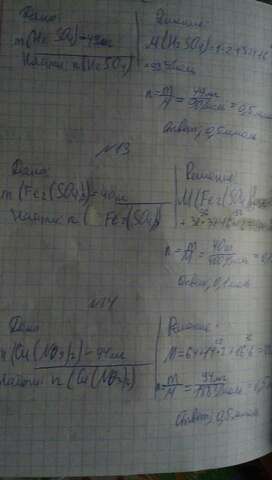 Дано:
m(H₂SO₄)=49г
Найти: n(H₂SO₄)
Решение:
M(H₂SO₄)=1·2+32+16·
=98г/моль
n=m/M=49г/98г/моль=0,5моль
Ответ: 0,5моль
№13
Дано:
m(Fe₂(SO₄)₃)=40г
Найти: n(Fe₂(SO₄)
Решение
M(Fe₂(SO₄)
n=m/M=40г/400г/моль=0,
Ответ: 0,1моль
№14
Дано
(Cu(NO₃)₂)=94г
Найти: n(Cu(NO₃)₂)
Решение:
M=64+14·2+16·6=
n=m/M=94г/188г/моль=0,
Ответ: 0,5моль